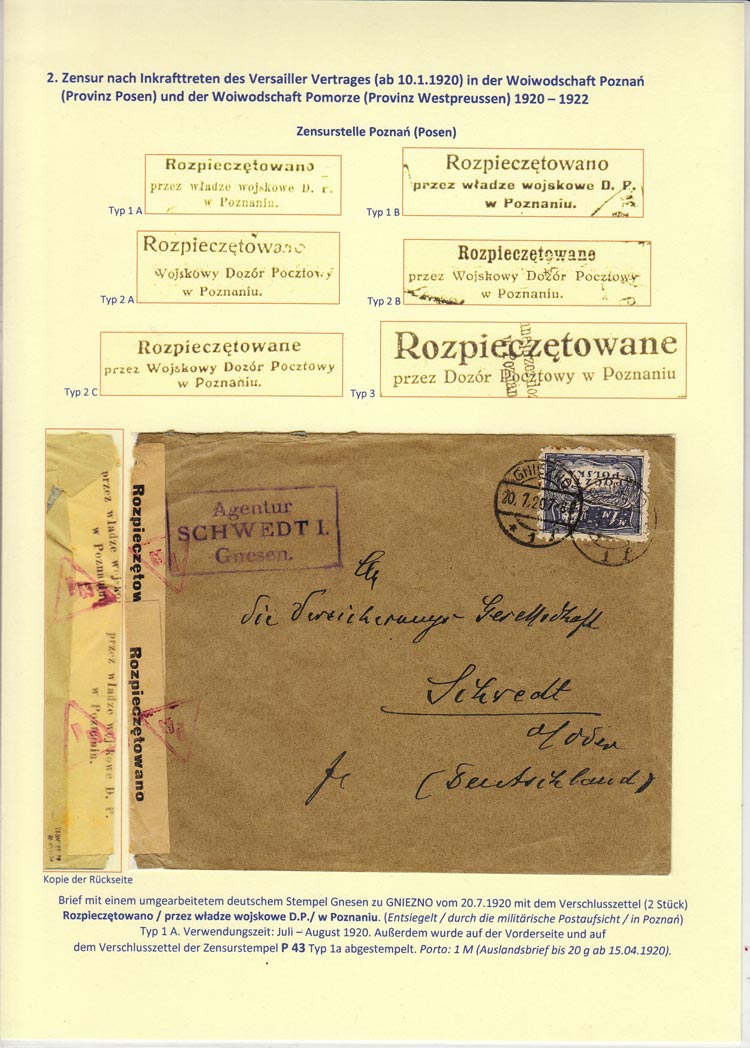 2. Zensur nach Inkrafttreten des Versailler Vertrages (ab 10.1.1920) in der Woiwodschaft Poznań
(Provinz Posen) und der Woiwodschaft Pomorze (Provinz Westpreussen) 1920 – 1922
Zensurstelle Poznań (Posen)
Rozpieczętowano
przez władze wojskowe D. P.
w Poznaniu.
Typ 1 A
Rozpieczętowano
przez władze wojskowe D. P.
w Poznaniu.
Typ 1 B
Rozpieczętowano
Wojskowy Dozór Pocztowy
w Poznaniu.
Typ 2 A
Rozpieczętowane
przez Wojskowy Dozór Pocztowy
w Poznaniu.
Typ 2 B
Rozpieczętowane
przez Wojskowy Dozór Pocztowy
w Poznaniu.
Typ 2 C
Rozpieczętowane
przez Dozór Pocztowy w Poznaniu
Typ 3
przez władze wojsko
w Poznaniu
przez władze wojskowe D. P.
w Poznaniu.
Rozpieczętow
Rozpieczętowano
Agentur
SCHWEDT I.
Gnesen.
GNIEZNO
20.7.20.7-8
* 1 f
POCZTA
POLSKA
1 M
1 f
An
die Versicherungs Gesellschaft
Schwedt
a/Oder
(Deutschland)
Kopie der Rückseite
Brief mit einem umgearbeitetem deutschem Stempel Gnesen zu GNIEZNO vom 20.7.1920 mit dem Verschlusszettel (2 Stück)
Rozpieczętowano / przez władze wojskowe D.P./ w Poznaniu. (Entsiegelt / durch die militärische Postaufsicht / in Poznań)
Typ 1 A. Verwendungszeit: Juli – August 1920. Außerdem wurde auf der Vorderseite und auf
dem Verschlusszettel der Zensurstempel P 43 Typ 1a abgestempelt. Porto: 1 M (Auslandsbrief bis 20 g ab 15.04.1920).